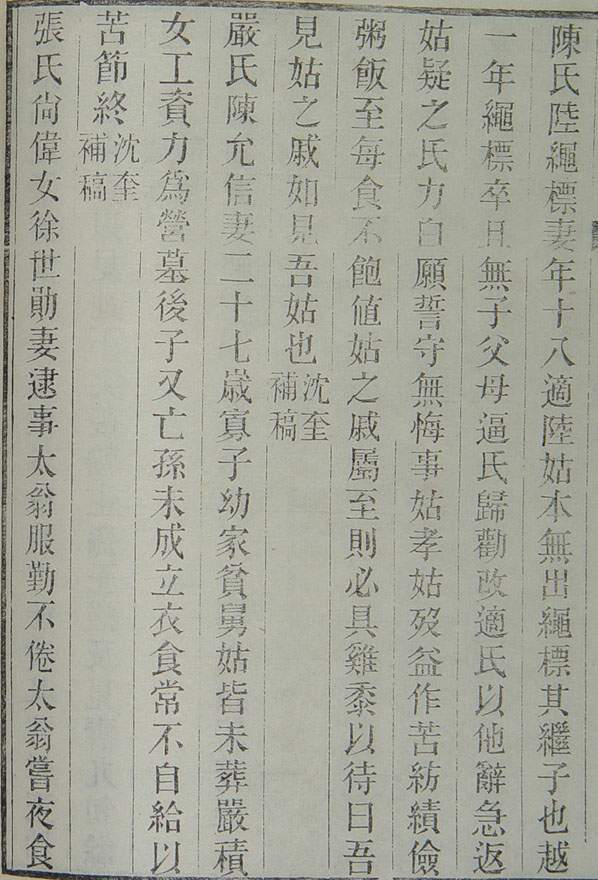 陳氏陸繩標妻年十八適陸姑本無出繩標其繼子也越
一年繩標卒且無子父母逼氏歸勸改適氏以他辭急返
姑疑之氏力白願誓守無悔事姑孝姑歿益作苦紡績儉
粥飯至每食不飽值姑之戚屬至則必具雞黍以待曰吾
見姑之戚如見吾姑也沈奎補稿
嚴氏陳允信妻二十七歲寡子幼家貧舅姑皆未葬嚴積
女工資力為營墓後子又亡孫未成立衣食常不自給以
苦節終沈奎補稿
張氏尙偉女徐世勛妻逮事太翁服勤不倦太翁嘗夜食